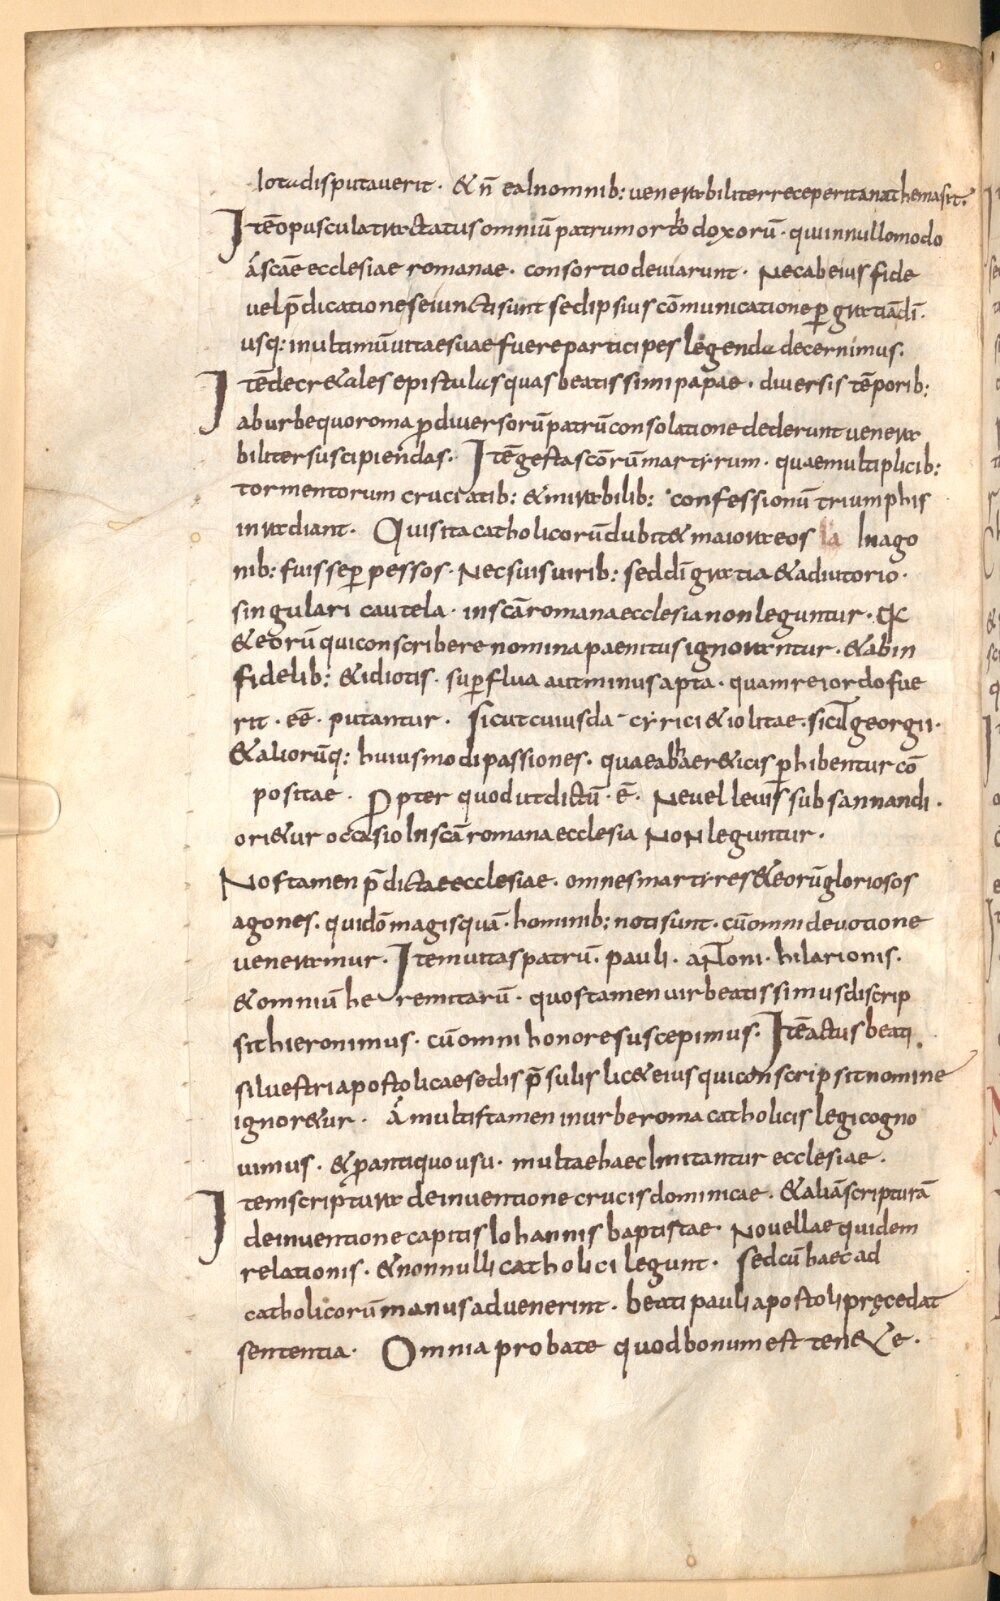 lotudisputaverit · & n̄ ealnomnib: venerabiliterreceperitanathemasit.
Itē opuscula tractatus omniū patrum orthodoxorū · qui in nullo modo
a scāe ecclesiae romanae · consortio deviarunt · Nec ab eius fide
vel p̄dicatione seiuncti sunt sed ipsius cōmunicatione per gratiā dī ·
usq: in ultimū vitae suae fuere participes legenda decernimus.
Itē decr&ales epistulas quas beatissimi papae · diversis tēporib:
ab urbe quo roma p diversorū patrū consolatione dederunt venera
biliter suscipiendas · Itē gesta scōrū martyrum · quae multiplicib:
tormentorum cruciatib: & mirabilib: confessionū triumphis
inradiant · Quis ita catholicorū dubit& maiora eos In ago
nib: fuisse perpessos · Nec suis virib: sed dī gratia & adiutorio ·
singulari cautela · in scā romana ecclesia non leguntur · Q
& eorū qui conscribere nomina paenitus ignorantur · & ab in
fidelib: & idiotis · superflua aut minus apta · quam rei ordo fue
rit · eē · putantur · Sicut cuiusda cyrici & iolitae · sicut georgii ·
& aliorūq: huiusmodi passiones · quae ab her&icis phibentur cō
positae · Propter quod ut dictū · ē · Ne vel levis subsannandi ·
ori&ur occasio In scā romana ecclesia NoN leguntur ·
Nos tamen p̄dictae ecclesiae · omnes martyres & eorū gloriosos
agones · qui dō magis quā · hominib: noti sunt · cū omni devotione
veneramur · Item vitas patrū · pauli · antoni · hilarionis ·
& omniū heremitarū · quos tamen vir beatissimus discrip
sit hieronimus · cū omni honore suscepimus · Itē actus beati
silvestri apostolicae sedis p̄sulis lic& eius qui conscripsit nomine
ignor&ur · A multis tamen in urbe roma catholicis legi cogno
vimus · & p antiquo usu · multae haec Imitantur ecclesiae ·
Item scriptura de inventione crucis dominicae · & aliā scripturā
de inventione capitis Iohannis baptistae · Novellae quidem
relationis · & nonnulli catholici legunt · Sed cū haec ad
catholicorū manus advenerint · beati pauli apostoli pręcedat
sententia · Omnia probate quod bonum est ten&e ·